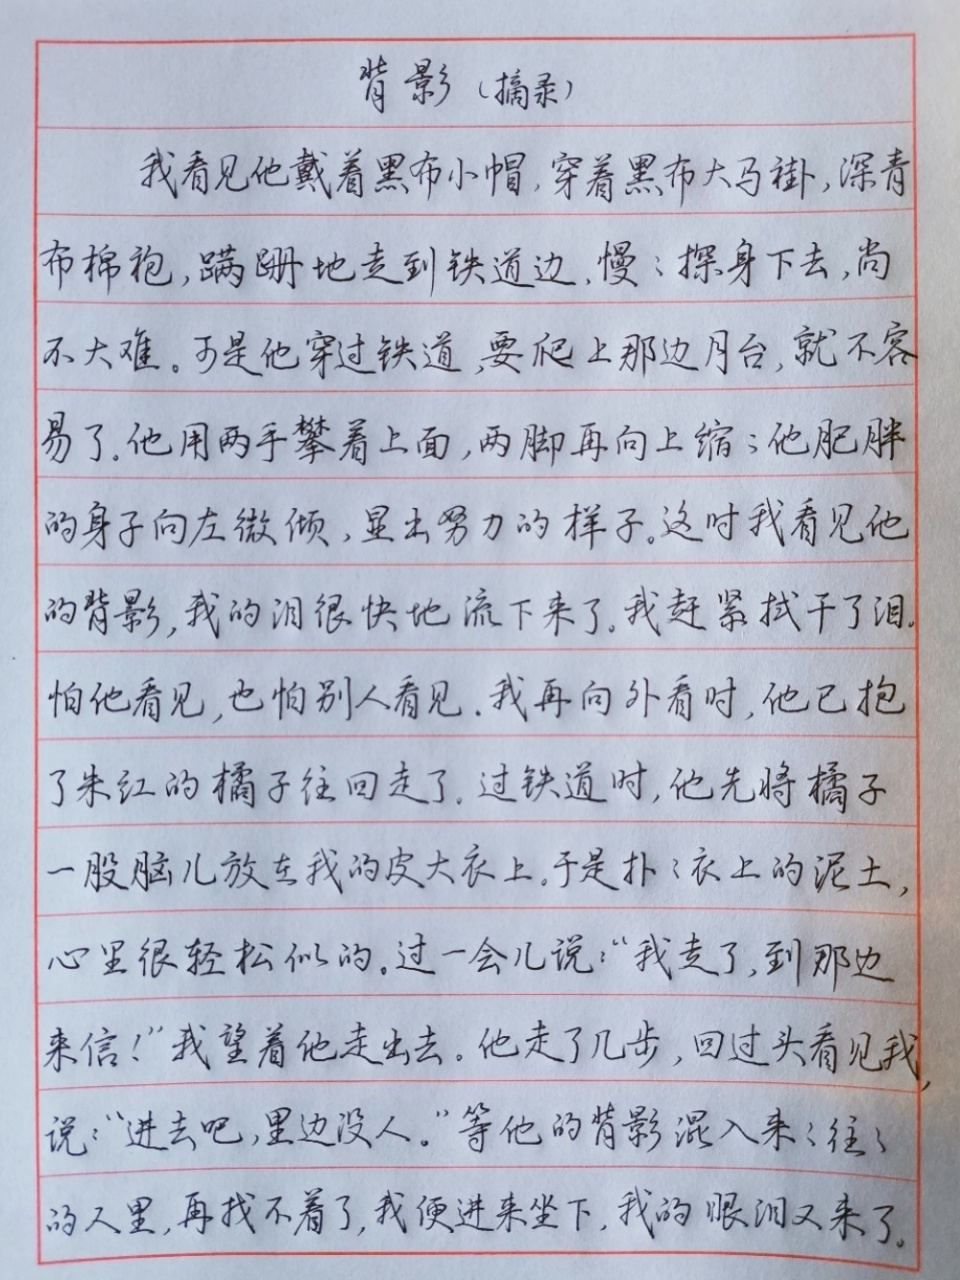 背影（摘录）
我看见他戴着黑布小帽，穿着黑布大马褂，深青
布棉袍，蹒跚地走到铁道边，慢慢探身下去，尚
不大难。可是他穿过铁道，要爬上那边月台，就不容
易了。他用两手攀着上面，两脚再向上缩；他肥胖
的身子向左微倾，显出努力的样子。这时我看见他
的背影，我的泪很快地流下来了。我赶紧拭干了泪。
怕他看见，也怕别人看见。我再向外看时，他已抱
了朱红的橘子往回走了。过铁道时，他先将橘子
一股脑儿放在我的皮大衣上。于是扑扑衣上的泥土，
心里很轻松似的。过一会儿说：“我走了，到那边
来信！”我望着他走出去。他走了几步，回过头看见我，
说：“进去吧，里边没人。”等他的背影混入来来往往
的人里，再找不着了，我便进来坐下，我的眼泪又来了。